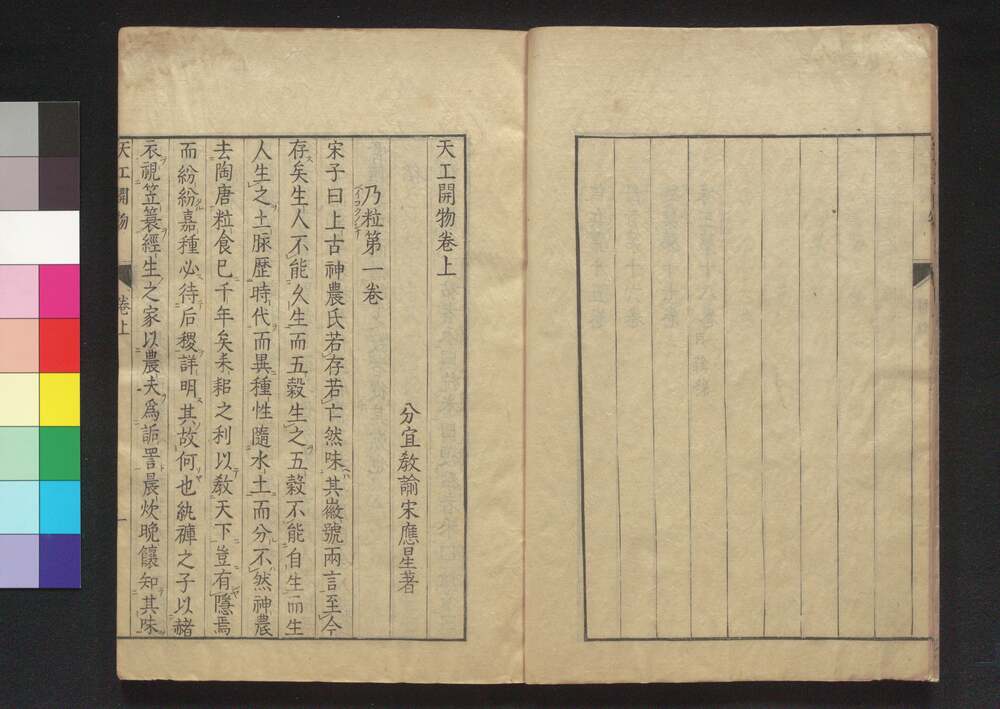 天工開物卷上
分宜敎諭宋應星著
乃粒第一卷
宋子曰上古神農氏若存若亡然味其徽號兩言至今
存矣生人不能久生而五穀生之五穀不能自生而生
人生之土脈歷時代而異種性隨水土而分不然神農
去陶唐粒食已千年矣耒耜之利以敎天下豈有隱焉
而紛紛嘉種必待后稷詳明其故何也紈褲之子以赭
衣視笠簑經生之家以農夫爲詬詈晨炊晚饟知其味
天工開物
卷上
一